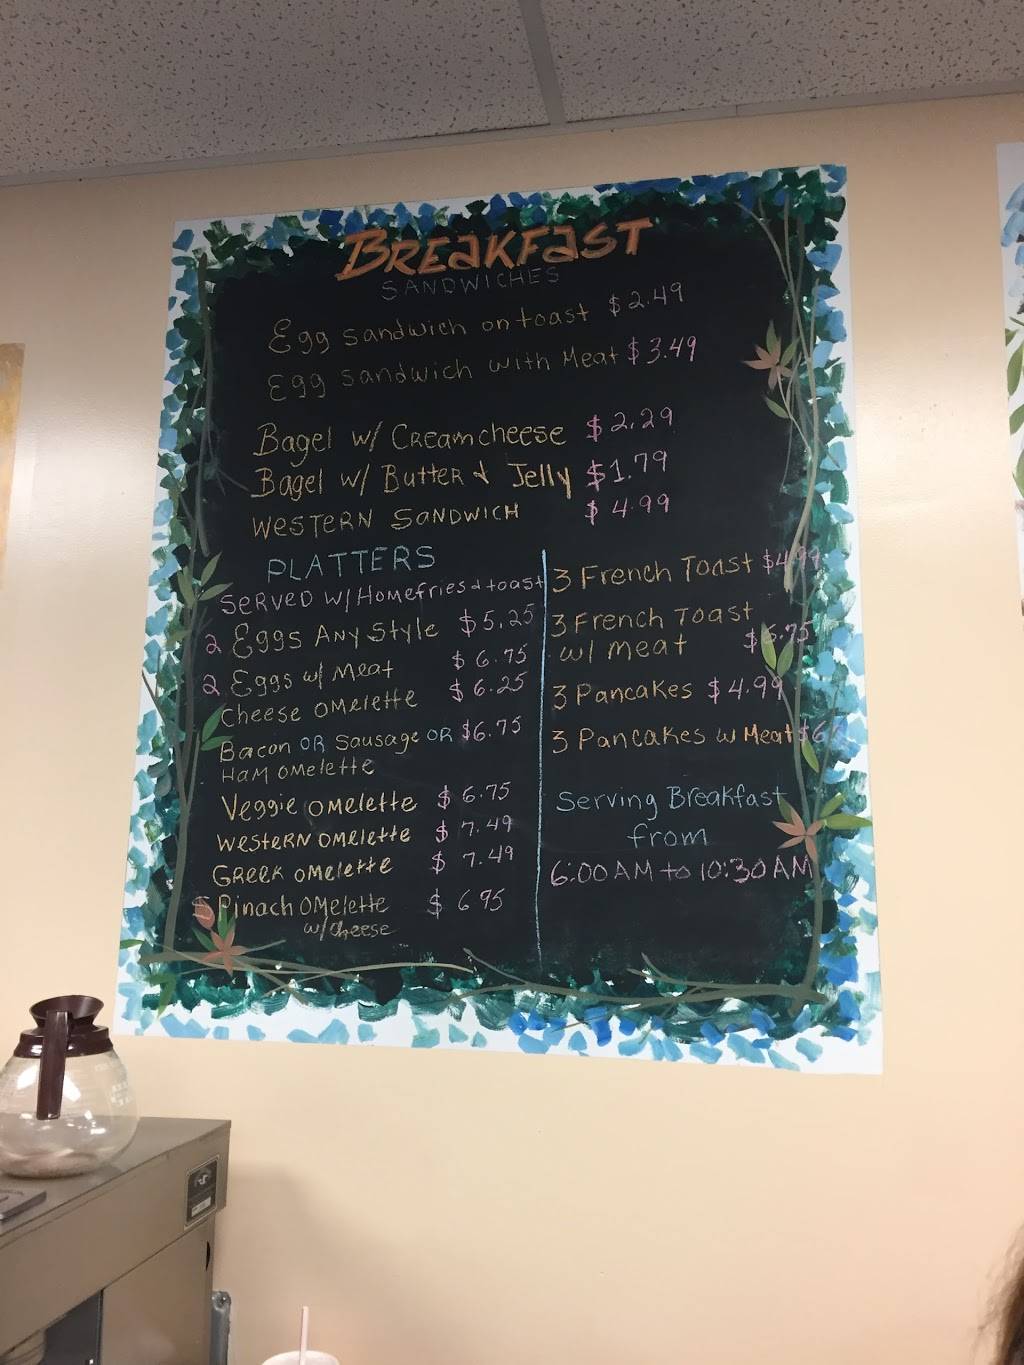 BREAKFAST
SANDWICHES
Egg sandwich on toast $2.49
Egg sandwich with Meat $3.49
Bagel w/ Creamcheese $2.29
Bagel w/ Butter & Jelly $1.79
WESTERN SANDWICH $4.99
PLATTERS
SERVED W/ Homefries & toast
2 Eggs Any Style $5.25
2 Eggs w/ Meat $6.75
Cheese OMelette $6.25
Bacon OR Sausage OR $6.75
HAM OMelette
Veggie OMelette $6.75
WESTERN OMElETTE $7.49
GREEK OMElette $7.49
SPinach OMelette $6 95
w/ Cheese
3 French Toast $4.99
3 French Toast
w/ meat $5.75
3 PanCaKes $4.99
3 PanCaKes w Meat
Serving Breakfast
from
6:00 AM to 10:30 AM